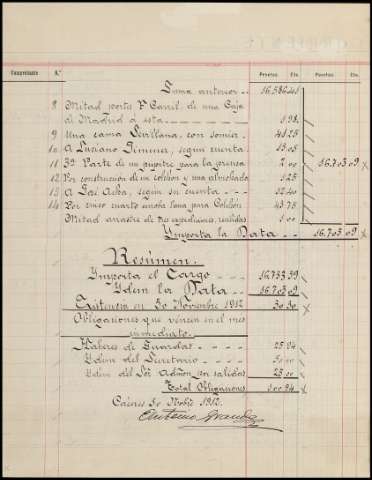 Comprobante N.º Pesetas Cts. Pesetas Cts.
Suma anterior - - 16.586.41
8 Mitad portes F Carril de una Caja
de Madrid á esta - - - 1.98
9 Una cama Sevillana, con somier. 41.25
10 A Luciano Jimenez, según cuenta 15.05
11 3ª Parte de un pupitre para la prensa 2.00 16.703.09
12 Por construcción de un colchón y una almohada 5.25
13 A José Acha, según su cuenta - - - 12.40
14 Por cuero cuarto lana para Colchón 43.75
Mitad arrastre de tres expediciones, recibidas
Importa la Data - - 16.703.09
Resúmen.
Importa el Cargo - - - 16.733.39
Ydem la Data - - - 16.703.09
Existencia en 30 Noviembre 1912 30.30
Obligaciones que vencen en el mes
inmediato.
Haberes de Guardas - - - 25.94
Ydem del Secretario - - - 50.00
Ydem del Sor Admon, sus salidas 25.00
Total Obligaciones 100.94
Cáceres 30 Novbre 1912.
Antonio